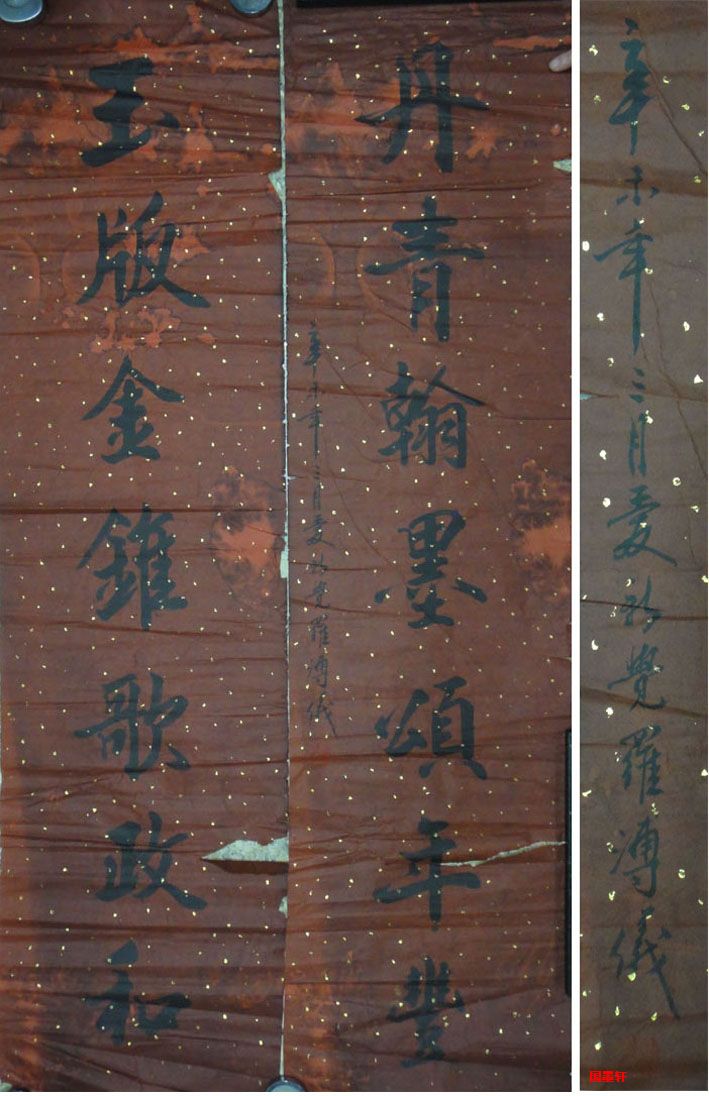 丹青翰墨頌年豐
辛未年三月愛新覺羅溥儀
玉版金錐歌政和
辛未年三月愛新覺羅溥儀
国墨轩